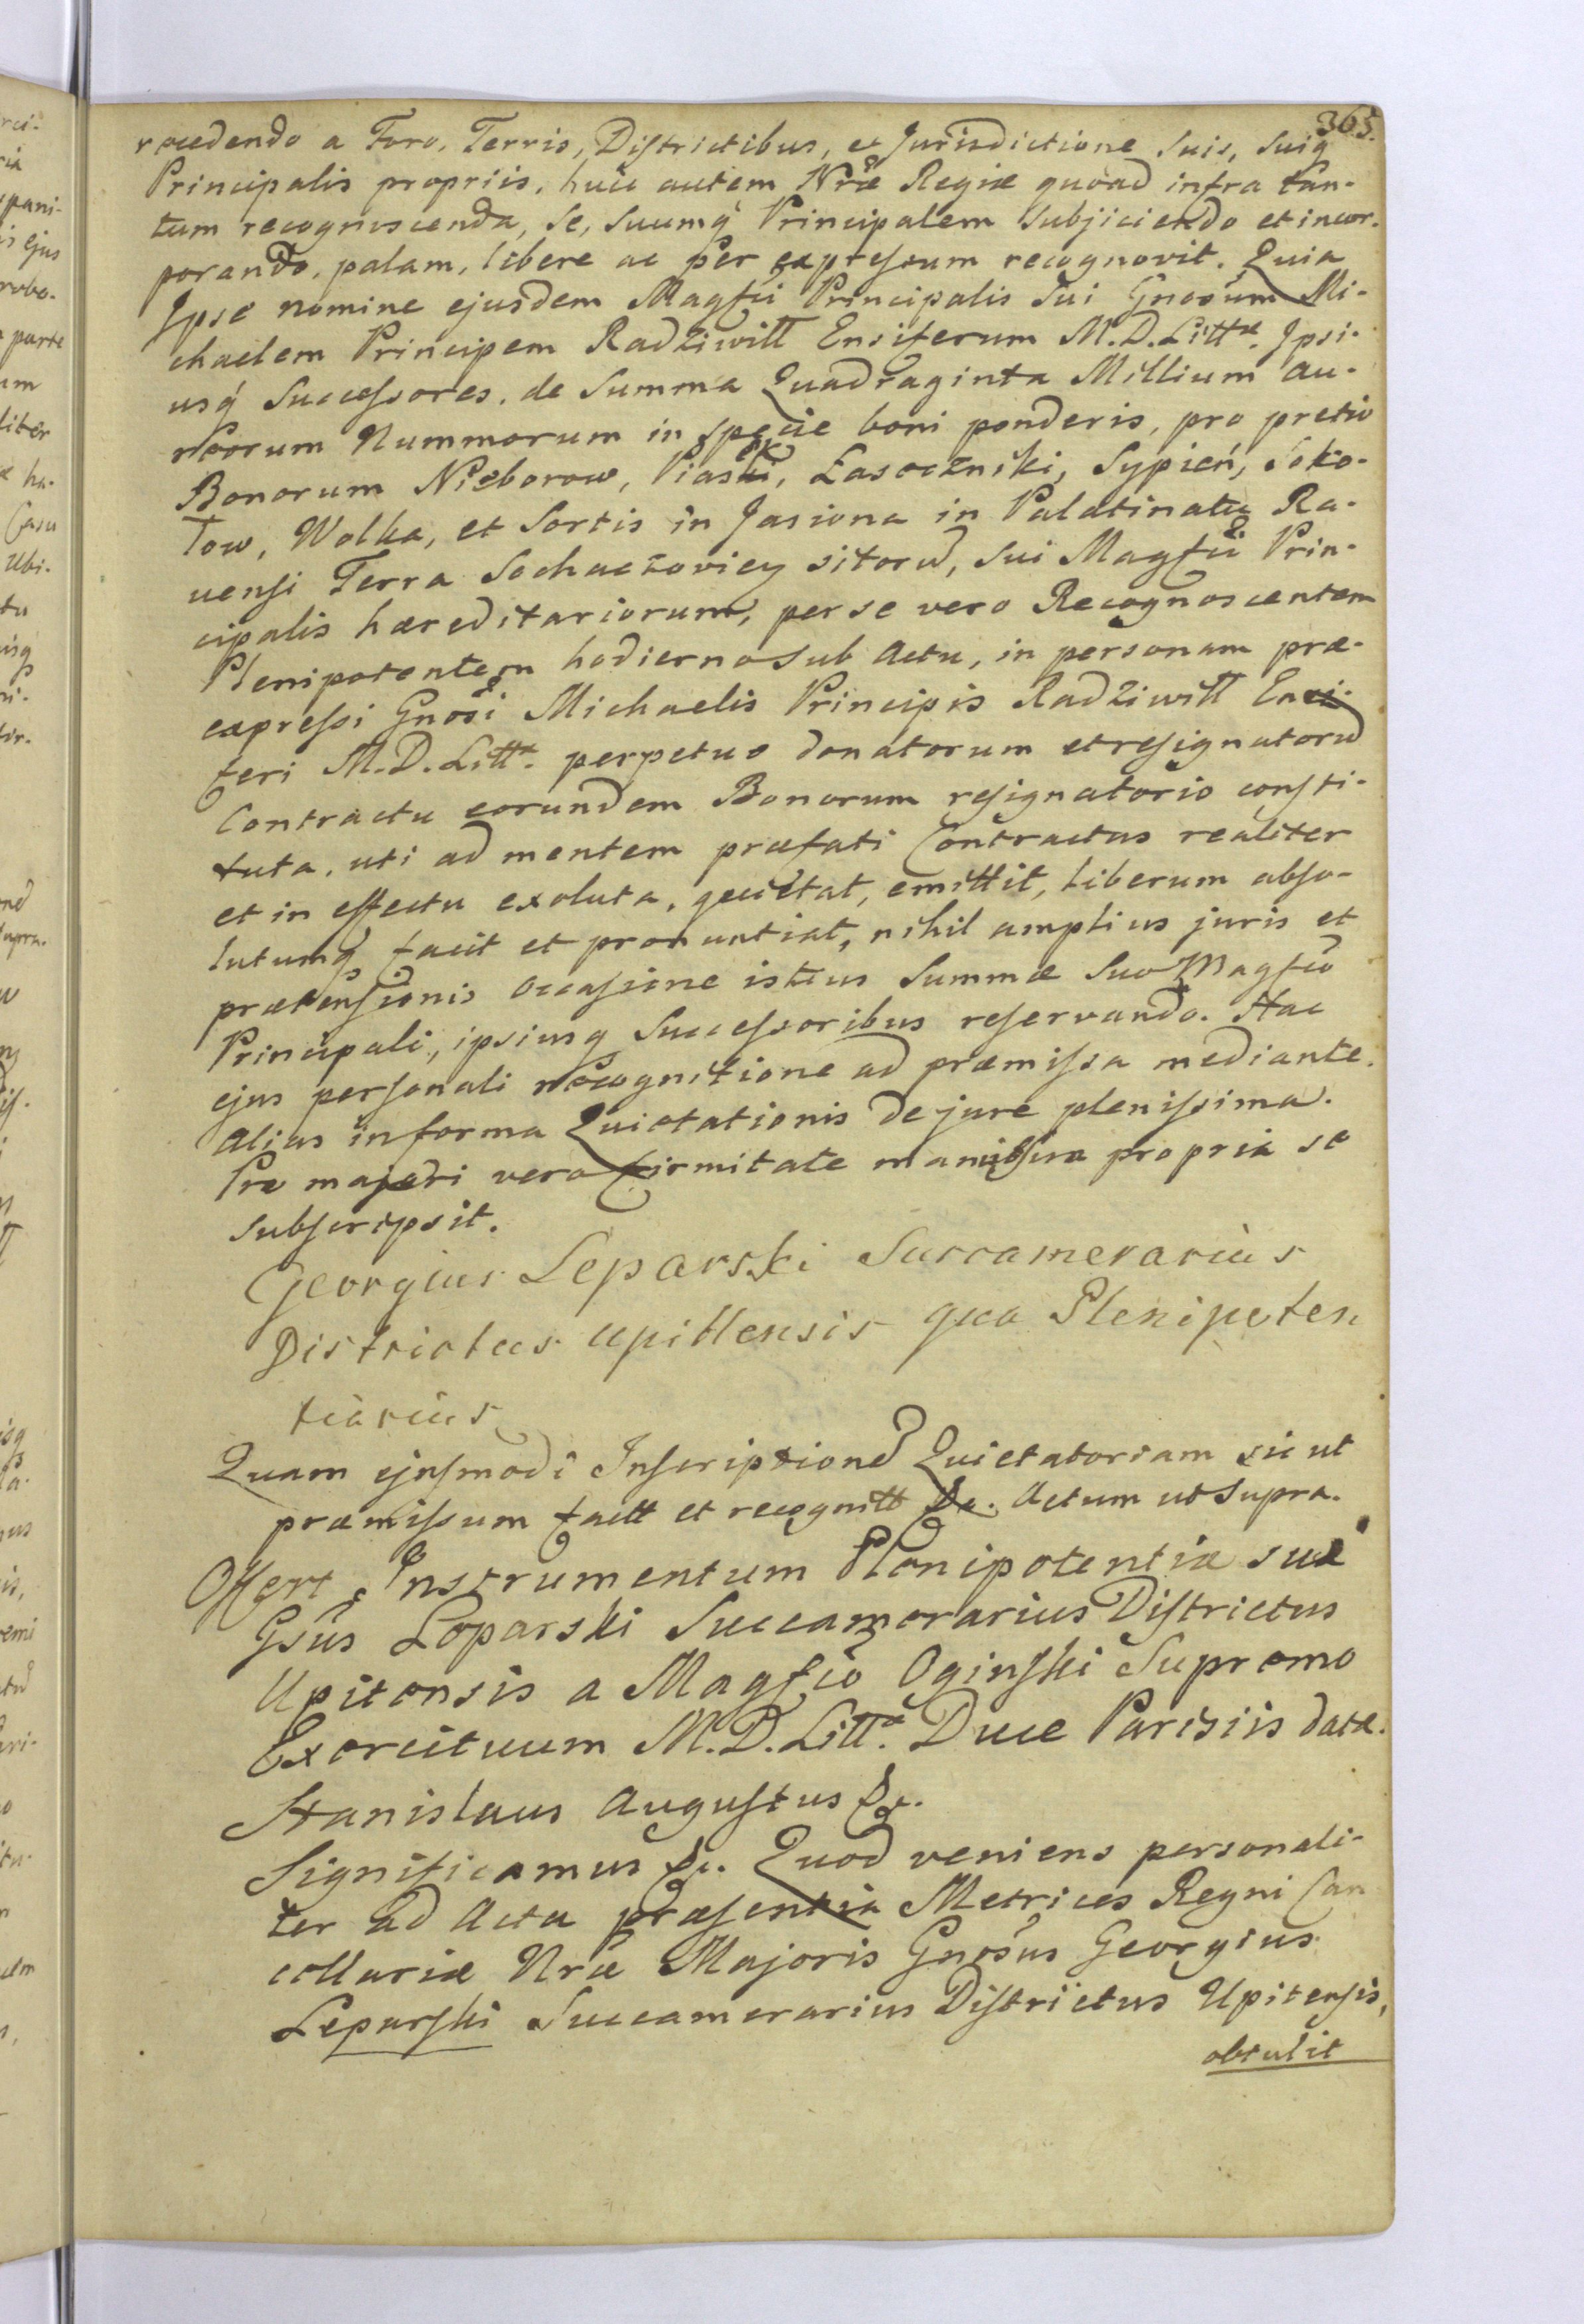 365.
rocedendo a Foro, Terris, Districtibus, et Jurisdictione Suis, Suiq
Principalis propriis, huic autem Nræ Regiæ quoad infra tan-
tum recognoscenda, se, Suumq Principalem Subjiciendo et incor-
porando, palam, libere ac per expressum recognovit. Quia
Ipse nomine ejusdem Magfci Principalis Sui Gnosum Mi-
chaelem Principem Radziwiłł Ensiferum M.D.Littæ. Ipsi-
usq Successores, de Summa Quadraginta Millium au-
reorum Nummorum in specie boni ponderis, pro pretio
Bonorum Nieborow, Piaski, Łasoczniki, Sypień, Soko-
łow, Wolka, et Sortis in Jasiona in Palatinatu Ra-
vensi Terra Sochaczoviey sitorū, Sui Magfci Prin-
cipalis hæreditariorum, per se vero Recognoscentem
Plenipotentem hodierno Sub Actu, in personam præ-
expressi Gnosi Michaelis Principis Radziwiłł Ensi-
feri M.D.Littæ. perpetuo donatorum et resignatorū
Contractu eorundem Bonorum resignatorio consti-
tuta, uti ad mentem præfati Contractus realiter
et in effectu exoluta, quietat, emittit, liberum abso-
lutumq facit et pronuntiat, nihil amplius juris et
prætensionis occasione istius Summæ Suo Magfco
Principali, ipsiusq Successoribus reservando. Hac
ejus personali recognitione ad præmissa mediante.
Alias in forma Quietationis de jure plenissima.
Pro majori vero firmitate manu sua propria se
subscripsit.
Georgius Leparski Succamerarius
Districtus Upittensis qua Plenipoten
tiarius
Quam ejusmodi Inscriptionē Quietatoriam sic ut
præmissum factt et recognitt &c. Actum ut Supra.
Offert Instrumentum Plenipotentiæ suæ
Gsus Leparski Succamerarius Districtus
Upitensis a Magfco Oginski Supremo
Exercituum M.D.Littæ. Duce Parisiis datæ.
Stanislaus Augustus &c.
Significamus &c. Quod veniens personali-
ter ad Acta præsentia Metrices Regni Can
cellariæ Nræ Majoris Gnosus Georgius
Leparski Succamerarius Districtus Upitensis,
obtulit